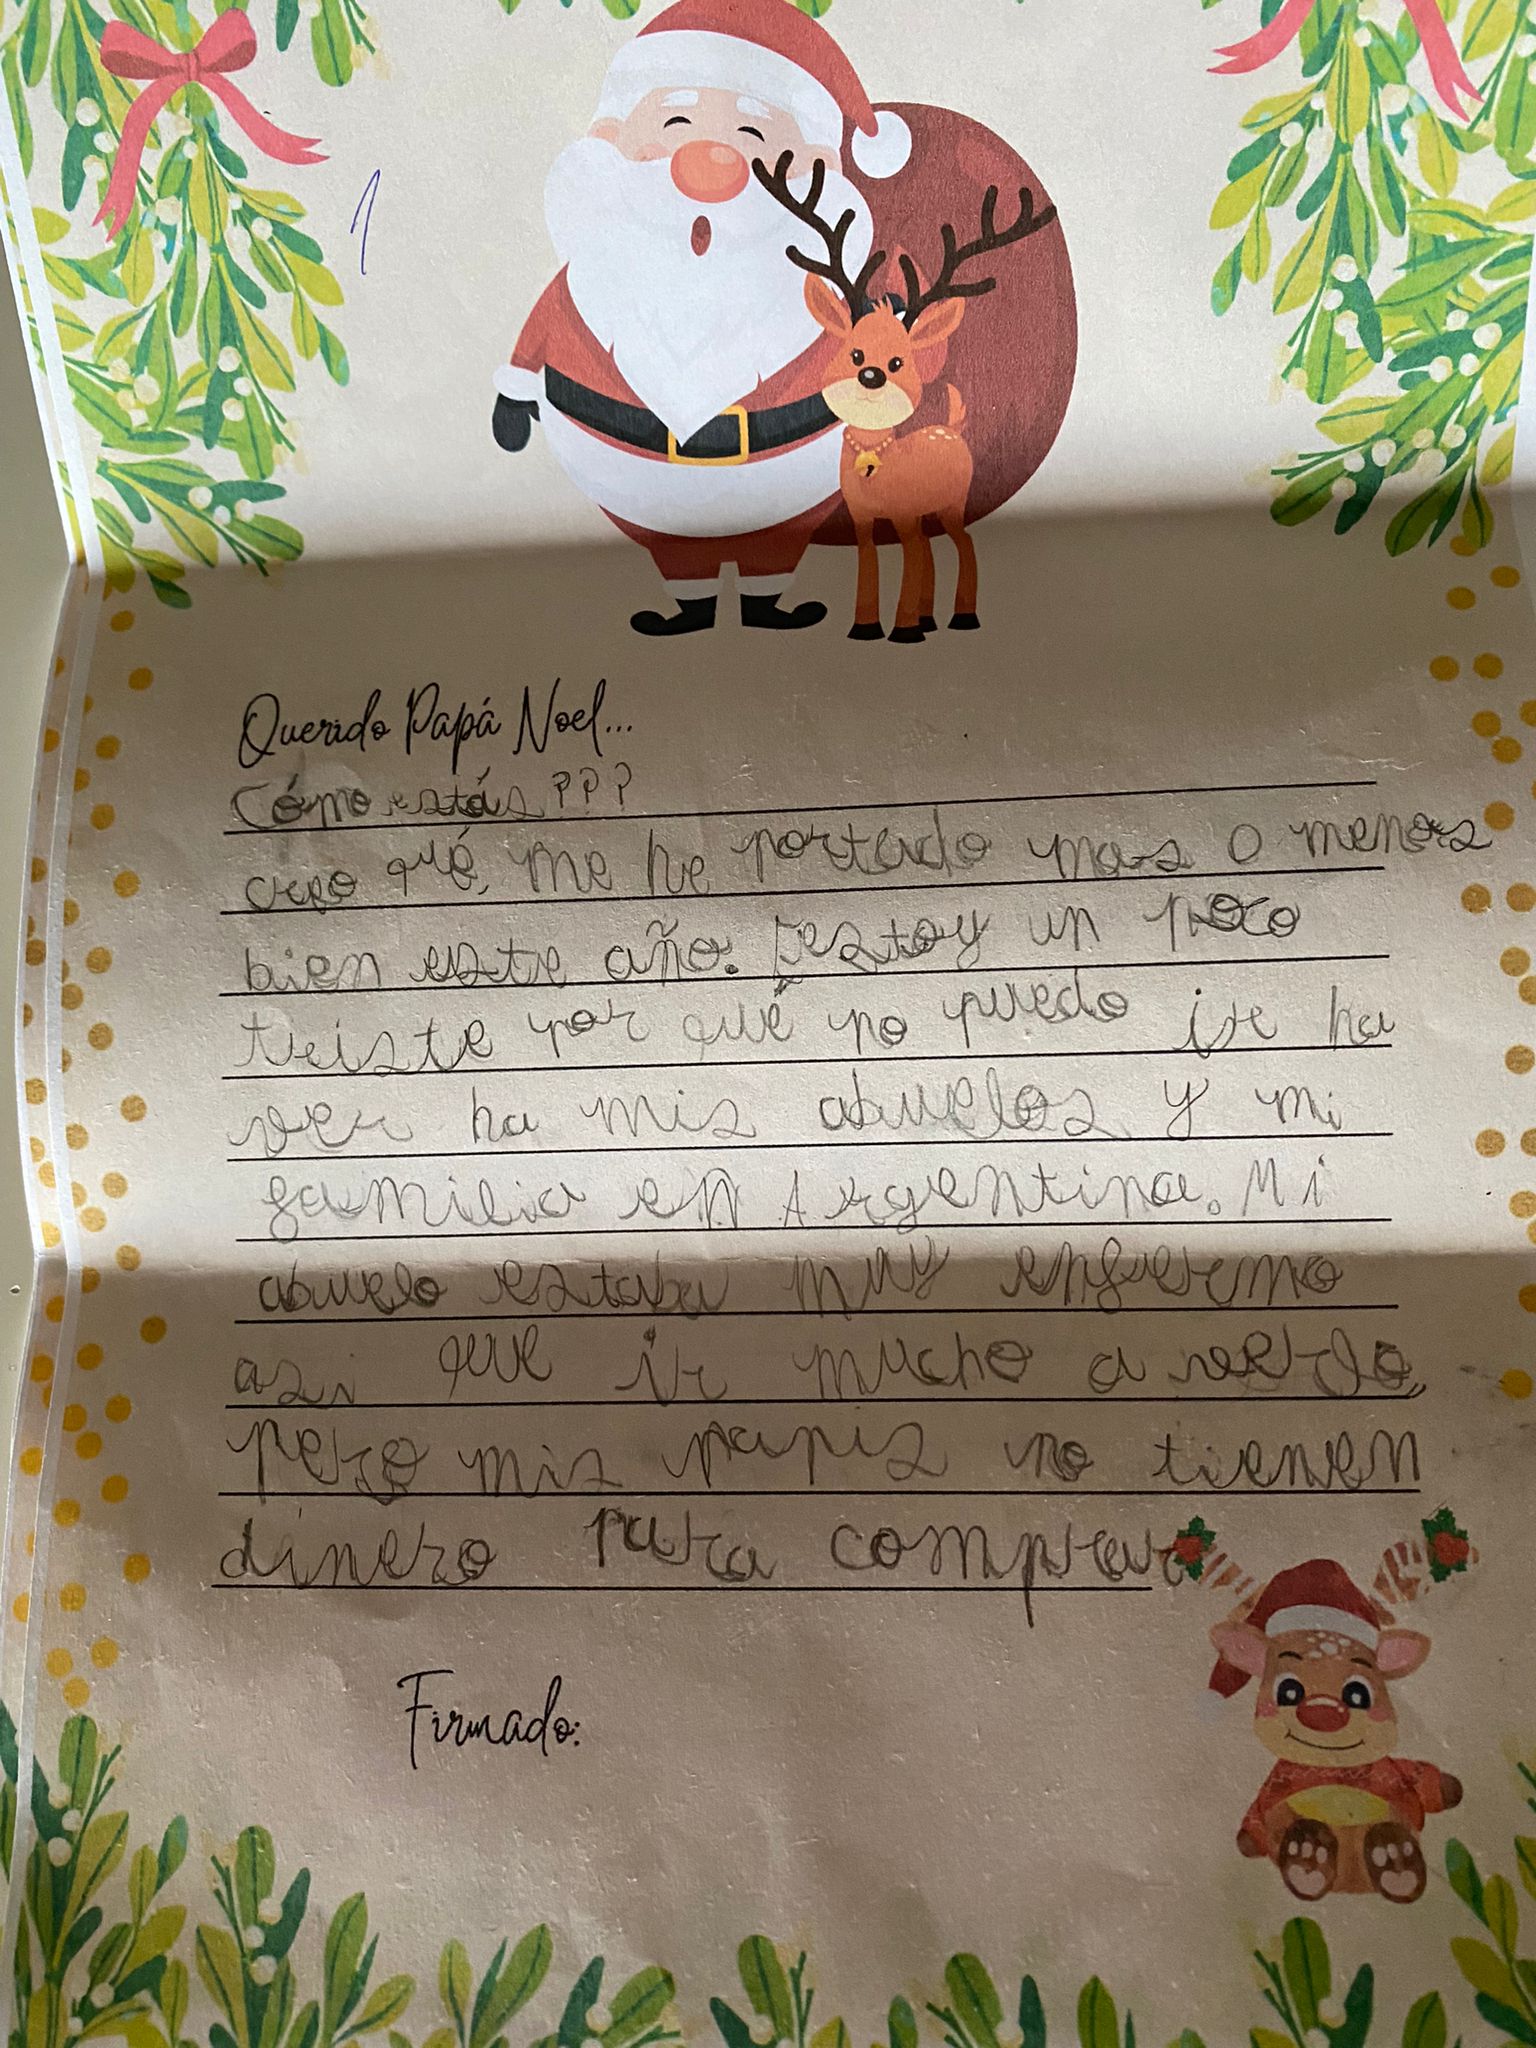 1
Querido Papá Noel...
Cómo estás???
creo qué, me he portado mas o menos
bien este año. Estoy un poco
triste por qué no puedo ir ha
ver ha mis abuelos y mi
familia en Argentina. Mi
abuelo estaba muy enfermo
asi que ir mucho a verlo,
pero mis papis no tienen
dinero para comprar
Firmado: